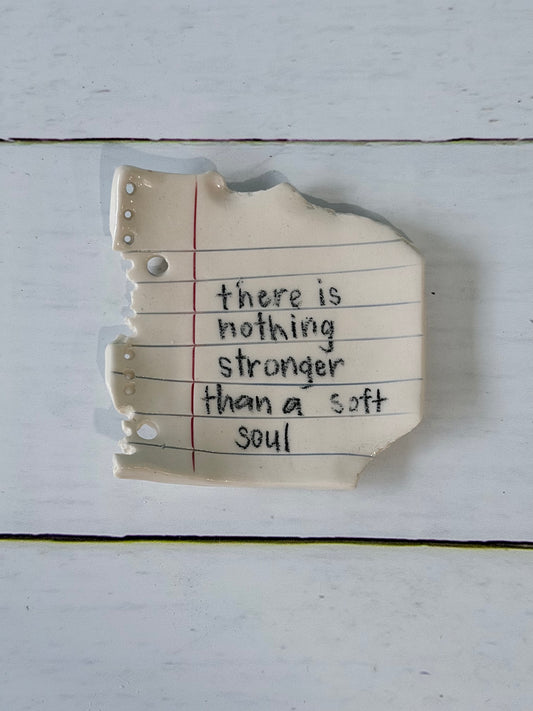 there is
nothing
stronger
than a soft
soul